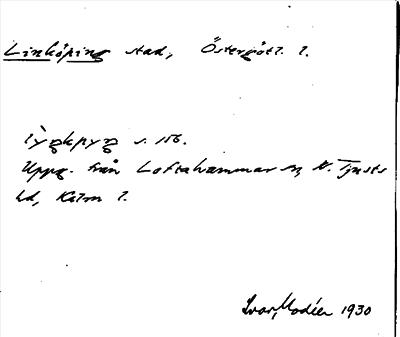 Linköping stad, Östergötl. l.
s. 156.
Uppg. från Loftahammar sn, N. Tjusts
hd, Kalm l.
Ivar Modéer 1930